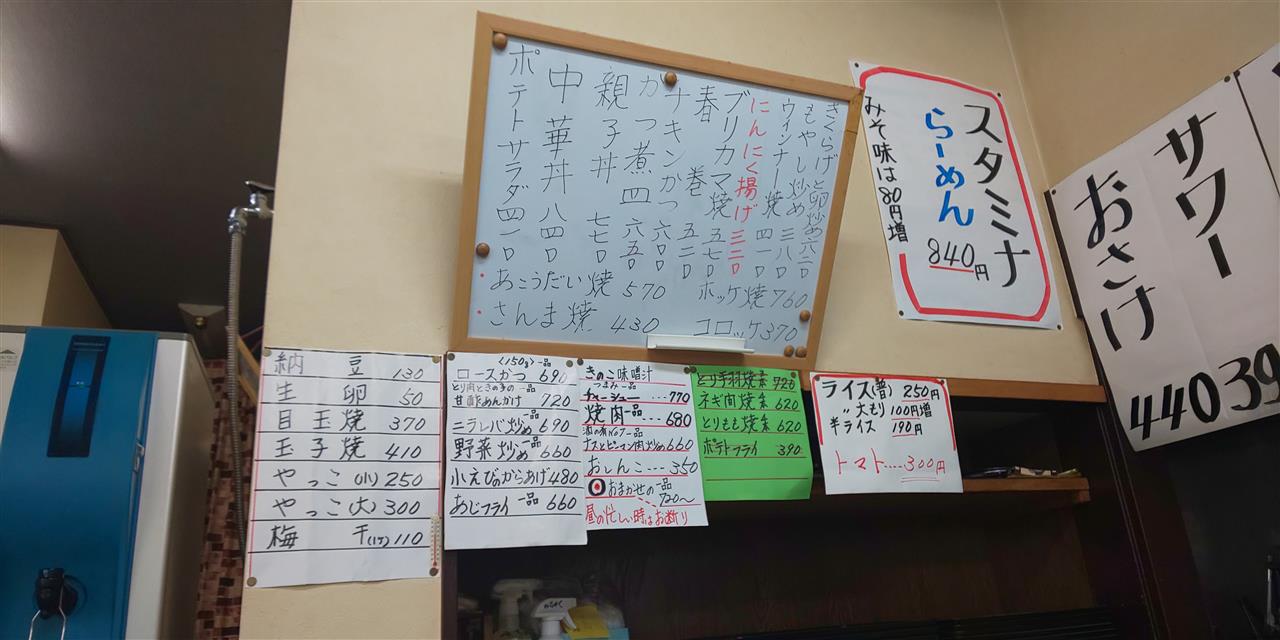 きくらげと卵炒め六二〇
もやし炒め三八〇
ウィンナー焼四一〇
にんにく揚げ三二〇
ブリカマ焼五七〇
春巻五二〇
チキンかつ六六〇
かつ煮四六五〇
親子丼七七〇
中華丼八四〇
ポテトサラダ四一〇
あこうだい焼 570
ホッケ焼 760
さんま焼 430
コロッケ 370
スタミナ
らーめん
840円
みそ味は80円増
サワー
おさけ
440
39
納豆 130
生卵 50
目玉焼 370
玉子焼 410
やっこ(小) 250
やっこ(大) 300
梅干(1ケ) 110
(150g)一品
ロースかつ 690
とり肉ときのこの一品
甘酢あんかけ 720
ニラレバ炒め一品 690
野菜炒め一品 660
小えびのからあげ 480
あじフライ一品 660
きのこ味噌汁
つまみ一品
チャーシュー....770
焼肉一品....680
酒の肴No.1一品
ナスとピーマン肉炒め 660
おしんこ....350
おまかせの一品
720〜
昼の忙しい時はお断り
とり手羽焼素 720
ネギ肉焼素 620
とりもも焼素 620
ポテトフライ 390
ライス(普) 250円
〃 大もり 100円増
半ライス 190円
トマト.....300円